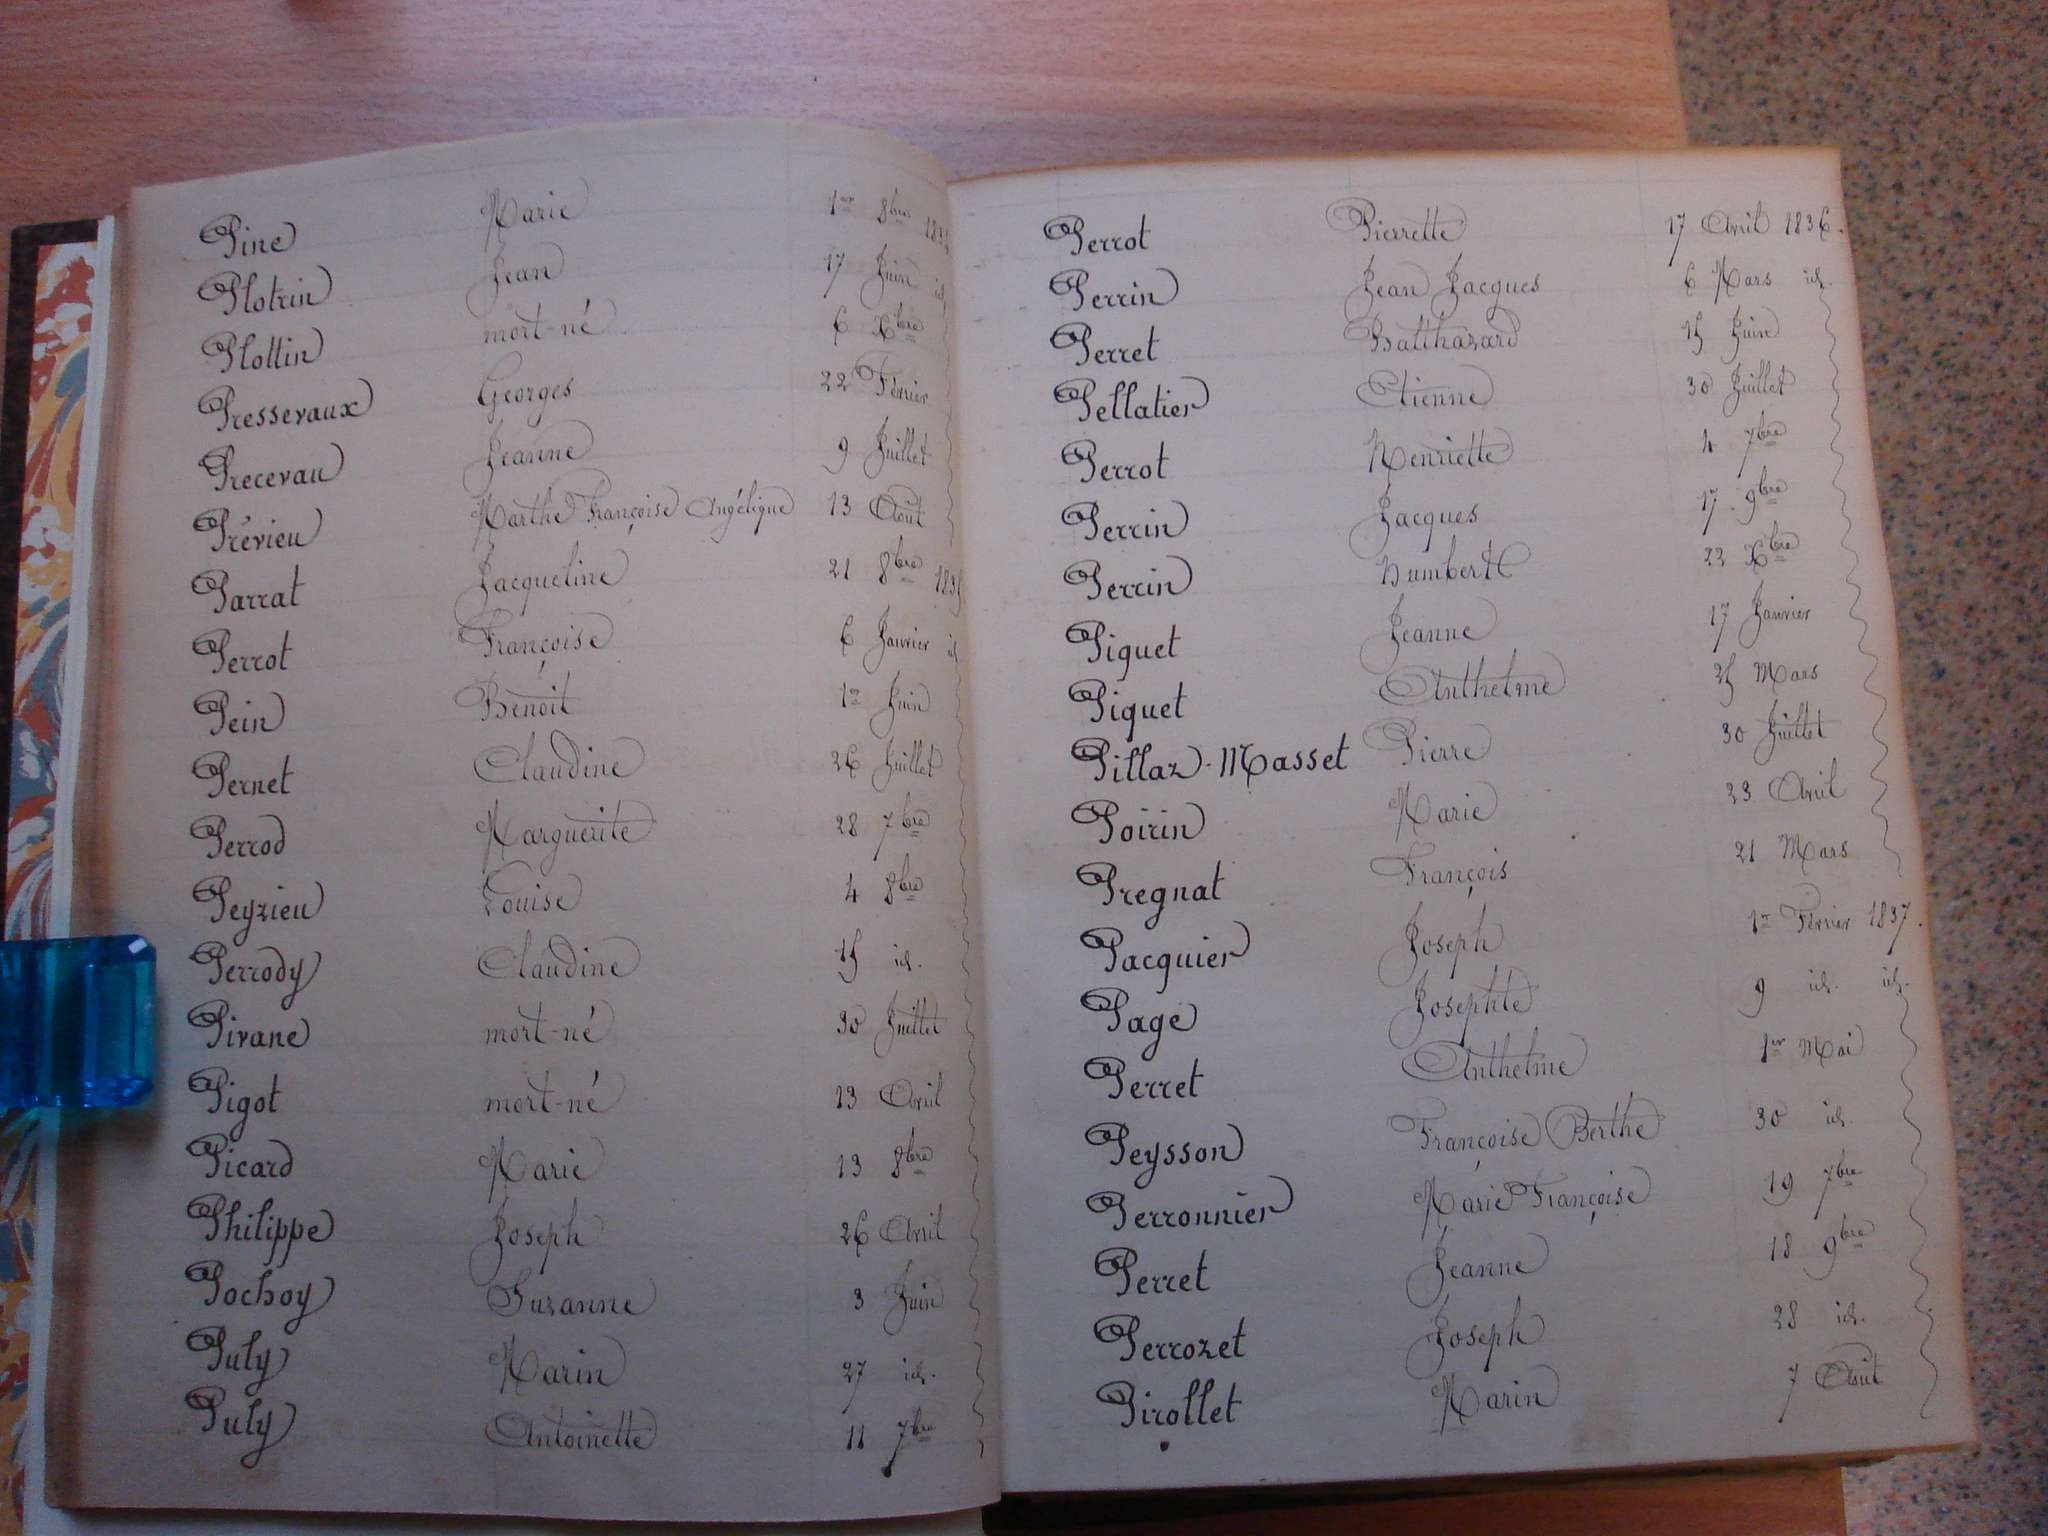 Pine Marie 1er 8bre
Plotrin Jean 17 Juin id
Plottin mort-né 6 Xbre
Pressevaux Georges 22 Février
Precevau Jeanne 9 Juillet
Prévieu Marthe Françoise Angélique 13 Août
Parrat Jacqueline 21 8bre
Perrot Françoise 6 Janvier id
Pein Benoit 1er Juin
Pernet Claudine 26 Juillet
Perrod Marguerite 28 7bre
Peyzieu Louise 4 8bre
Perrody Claudine 15 id.
Pivane mort-né 30 Juillet
Pigot mort-né 13 Avril
Picard Marie 13 8bre
Philippe Joseph 26 Avril
Pochoy Suzanne 3 Juin
Puly Marin 27 id.
Puly Antoinette 11 7bre
Perrot Pierrette 17 Avril 1836.
Perrin Jean Jacques 6 Mars id.
Perret Balthazard 15 Juin
Pellatier Etienne 30 Juillet
Perrot Henriette 4 7bre
Perrin Jacques 17 9bre
Perrin Humbert 22 Xbre
Piquet Jeanne 17 Janvier
Piquet Anthelme 25 Mars
Pillaz-Masset Pierre 30 Juillet
Poirin Marie 23 Avril
Pregnat François 21 Mars
Pacquier Joseph 1er Février 1837.
Page Josephte 9 id. id.
Perret Anthelme 1er Mai
Peysson Françoise Berthe 30 id.
Perronnier Marie Françoise 19 7bre
Perret Jeanne 18 9bre
Perrozet Joseph 28 id.
Pirollet Marin 7 Août